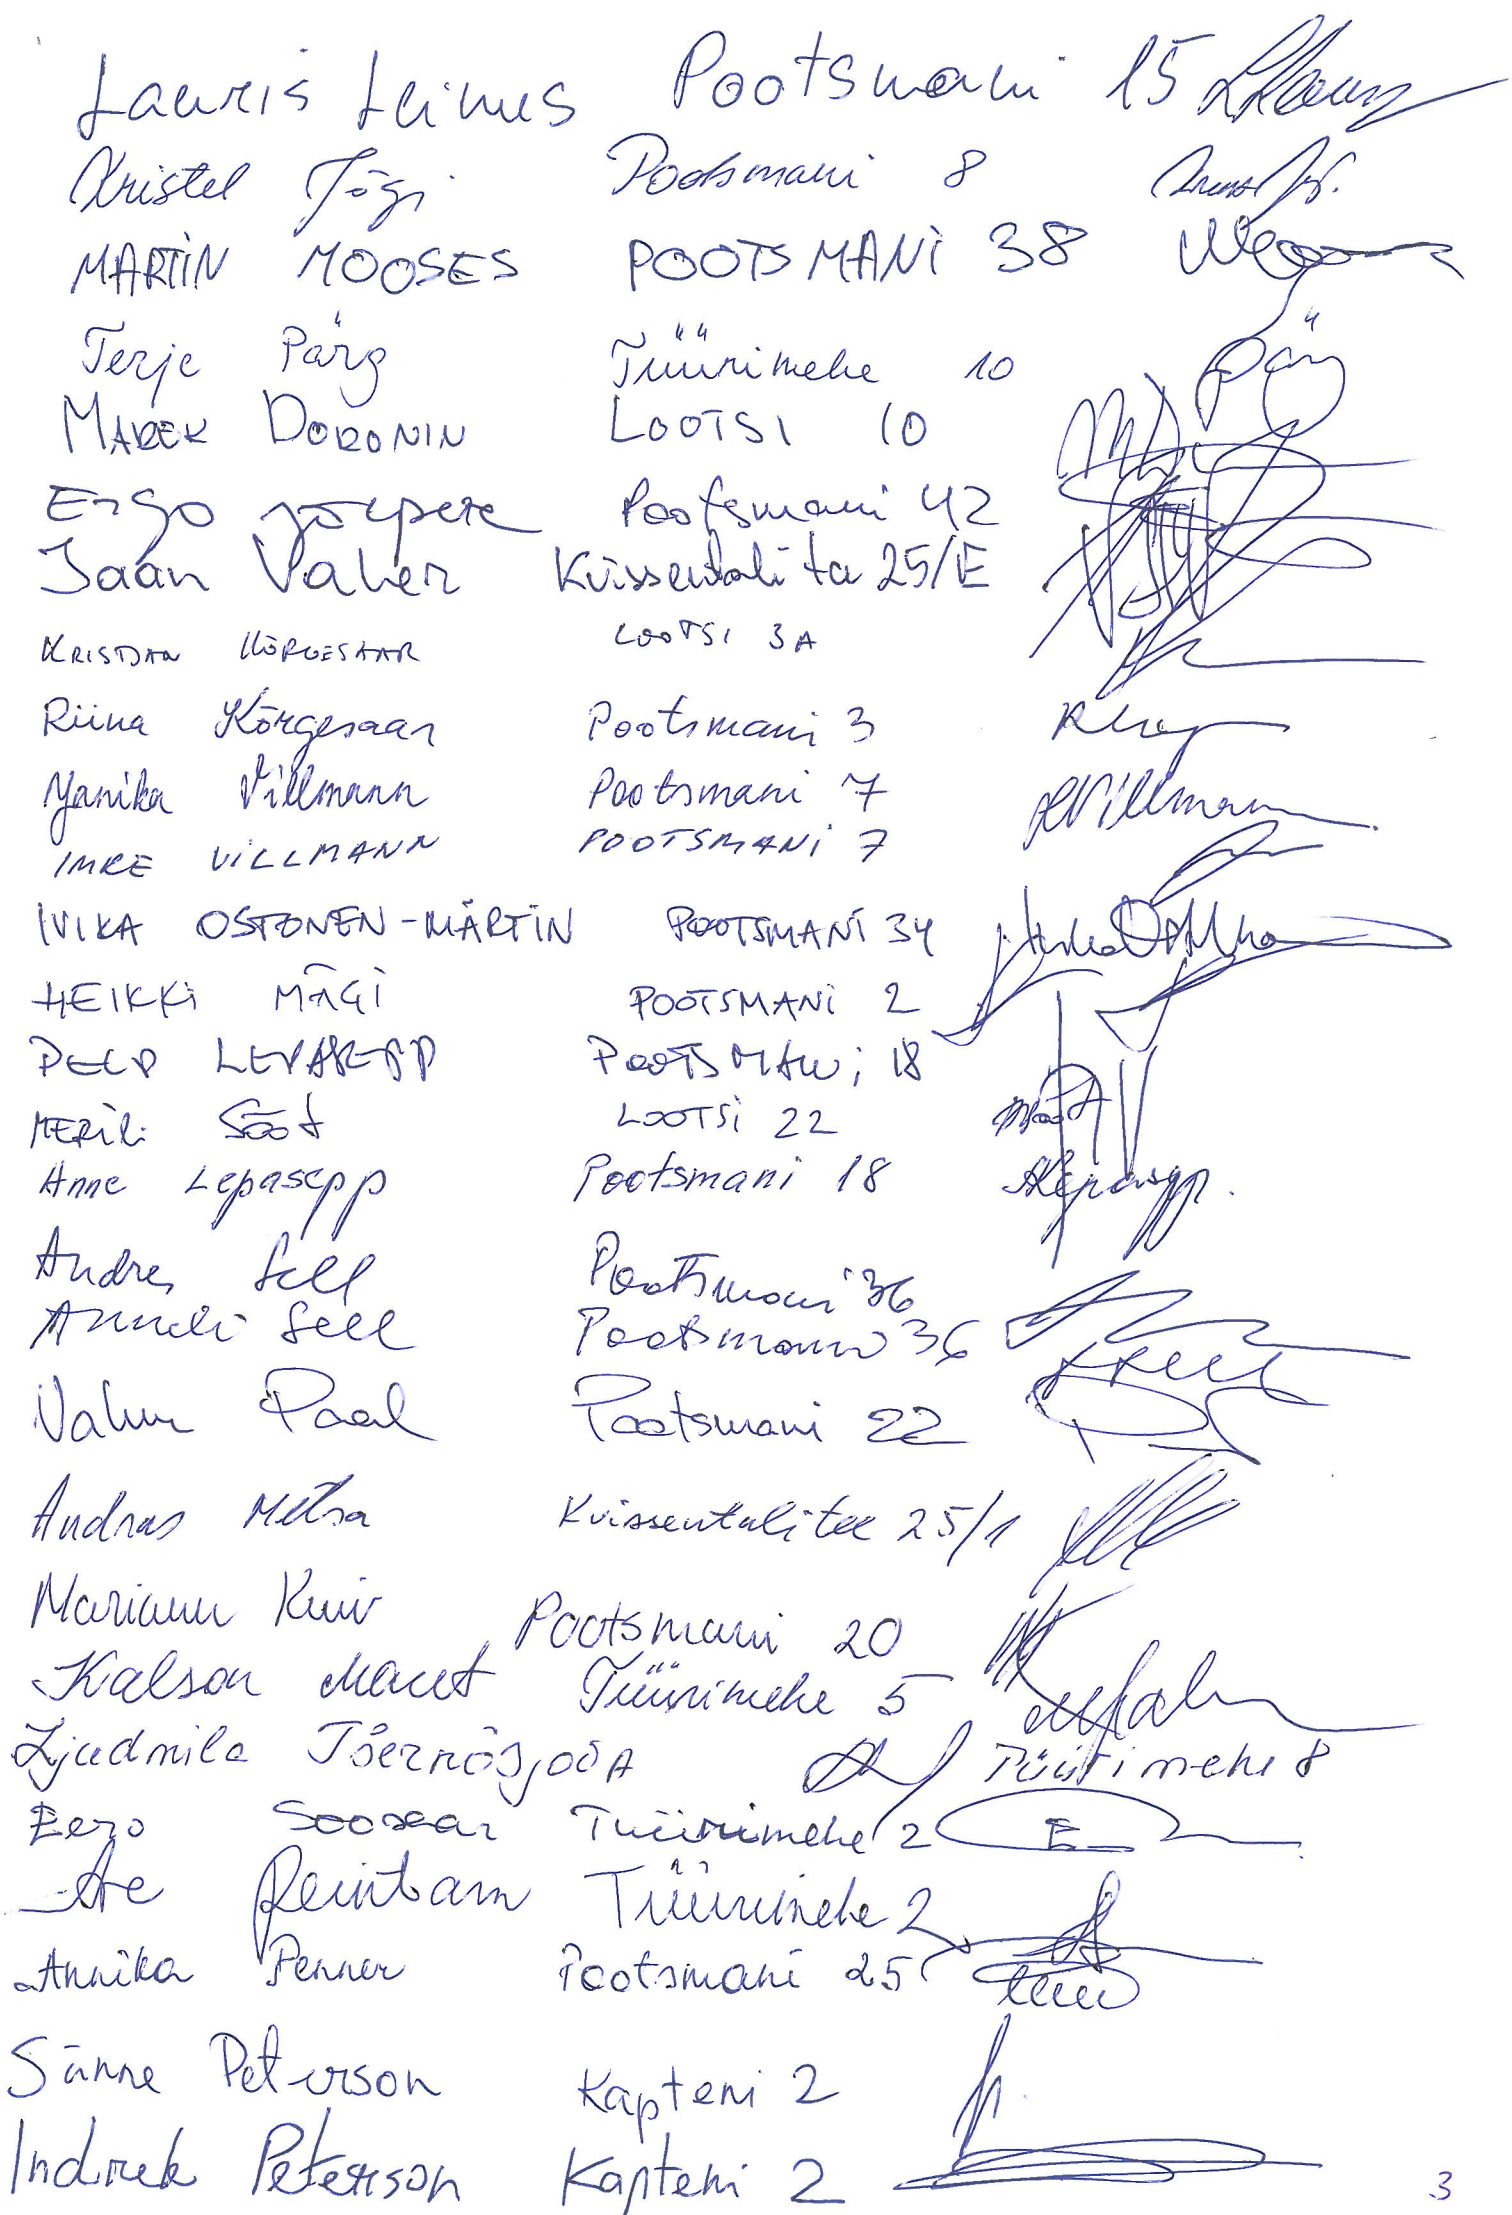 Lauris Leinus Pootsmani 15
Kristel Jõgi Pootsmani 8
MARTIN MOOSES POOTSMANI 38
Terje Pärg Tüürimehe 10
MAREK DORONIN LOOTSI 10
Ergo Pootsmani 42
Jaan Vaher Kvissentali tee 25/E
KRISTJAN KÕRGESAAR LOOTSI 3A
Riina Kõrgesaar Pootsmani 3
Janika Villmann Pootsmani 7
IMRE VILLMANN POOTSMANI 7
IVIKA OSTONEN-MÄRTIN POOTSMANI 34
HEIKKI MÄGI POOTSMANI 2
PEEP LEPASEPP POOTSMANI 18
MERILI Sööt LOOTSI 22
Anne Lepasepp Pootsmani 18
Andres Sell Pootsmani 36
Anneli Sell Pootsmani 36
Paal Pootsmani 22
Andras Metsa Kvissentali tee 25/1
Mariann Kuiv Pootsmani 20
Kalson Maret Tüürimehe 5
Ljudmila Tüürimehe 8
Eero Soosaar Tüürimehe 2
Reintam Tüürimehe 2
Annika Penner Pootsmani 25
Sänne Peterson Kapteni 2
Indrek Peterson Kapteni 2
3